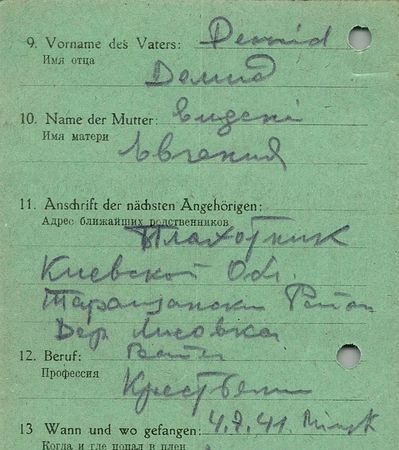 9. Vorname des Vaters: Demid
Имя отца
Демид
10. Name der Mutter: Eugeni
Имя матери
Евгения
11. Anschrift der nächsten Angehörigen:
Адрес ближайших родственников
Плахотник
Киевской Обл.
Таращански Район
Дер Лисовка
12. Beruf:
Профессия
13 Wann und wo gefangen: 4.7.41. Minsk
Когда и где попал в плен